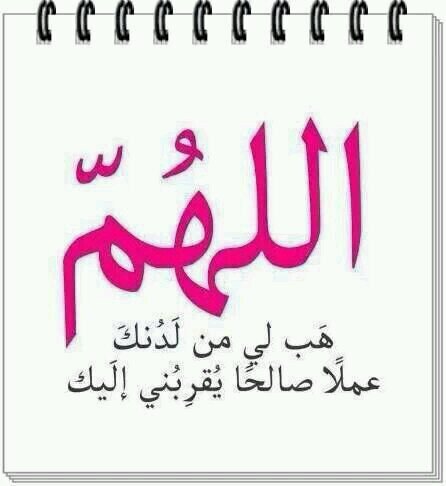 اللهُمّ
هَب لي من لَدُنكَ
عملًا صالحًا يُقرِبُني إلَيك